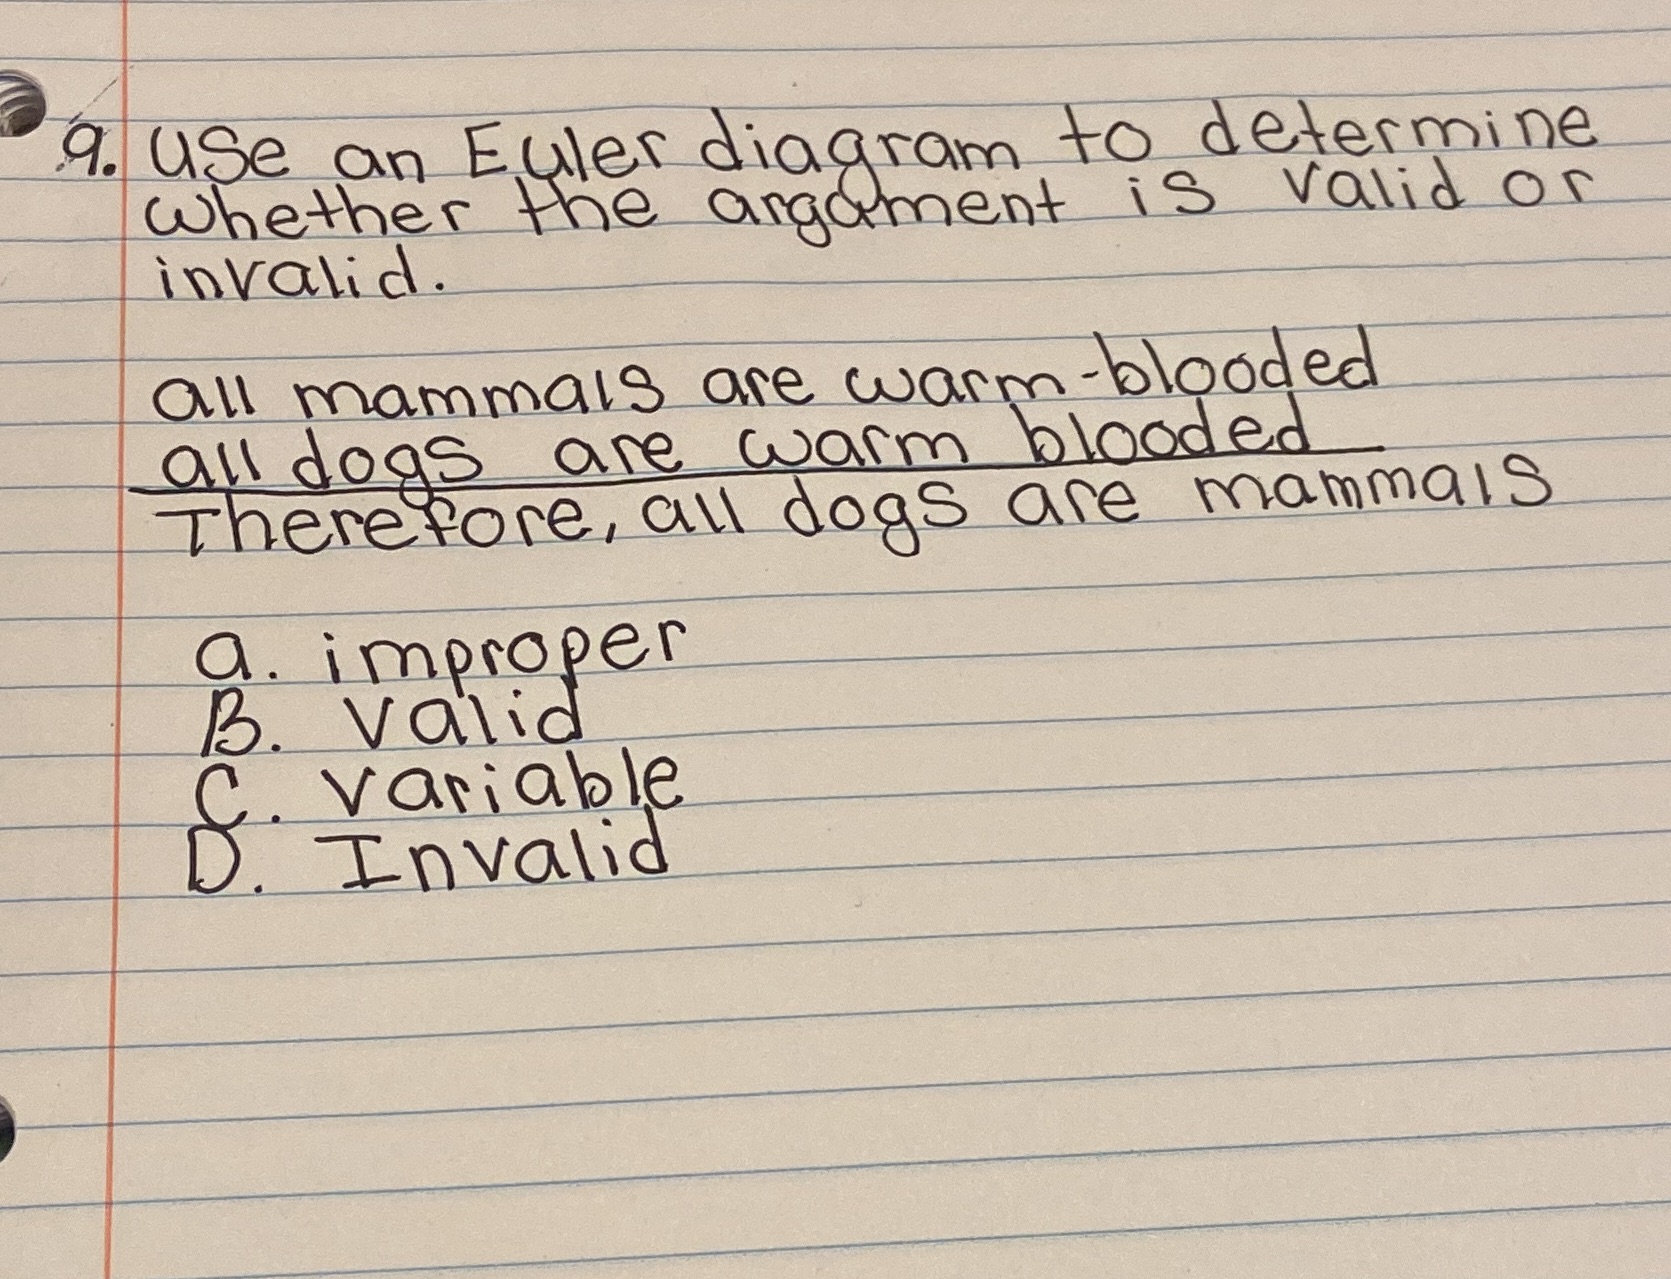 9. Use an Euler diagram to determine
whether the argument is valid or
invalid.
all mammals are warm-blooded
all dogs are warm blooded
Therefore, all dogs are mammals
a. improper
B. valid
C. variable
D. Invalid